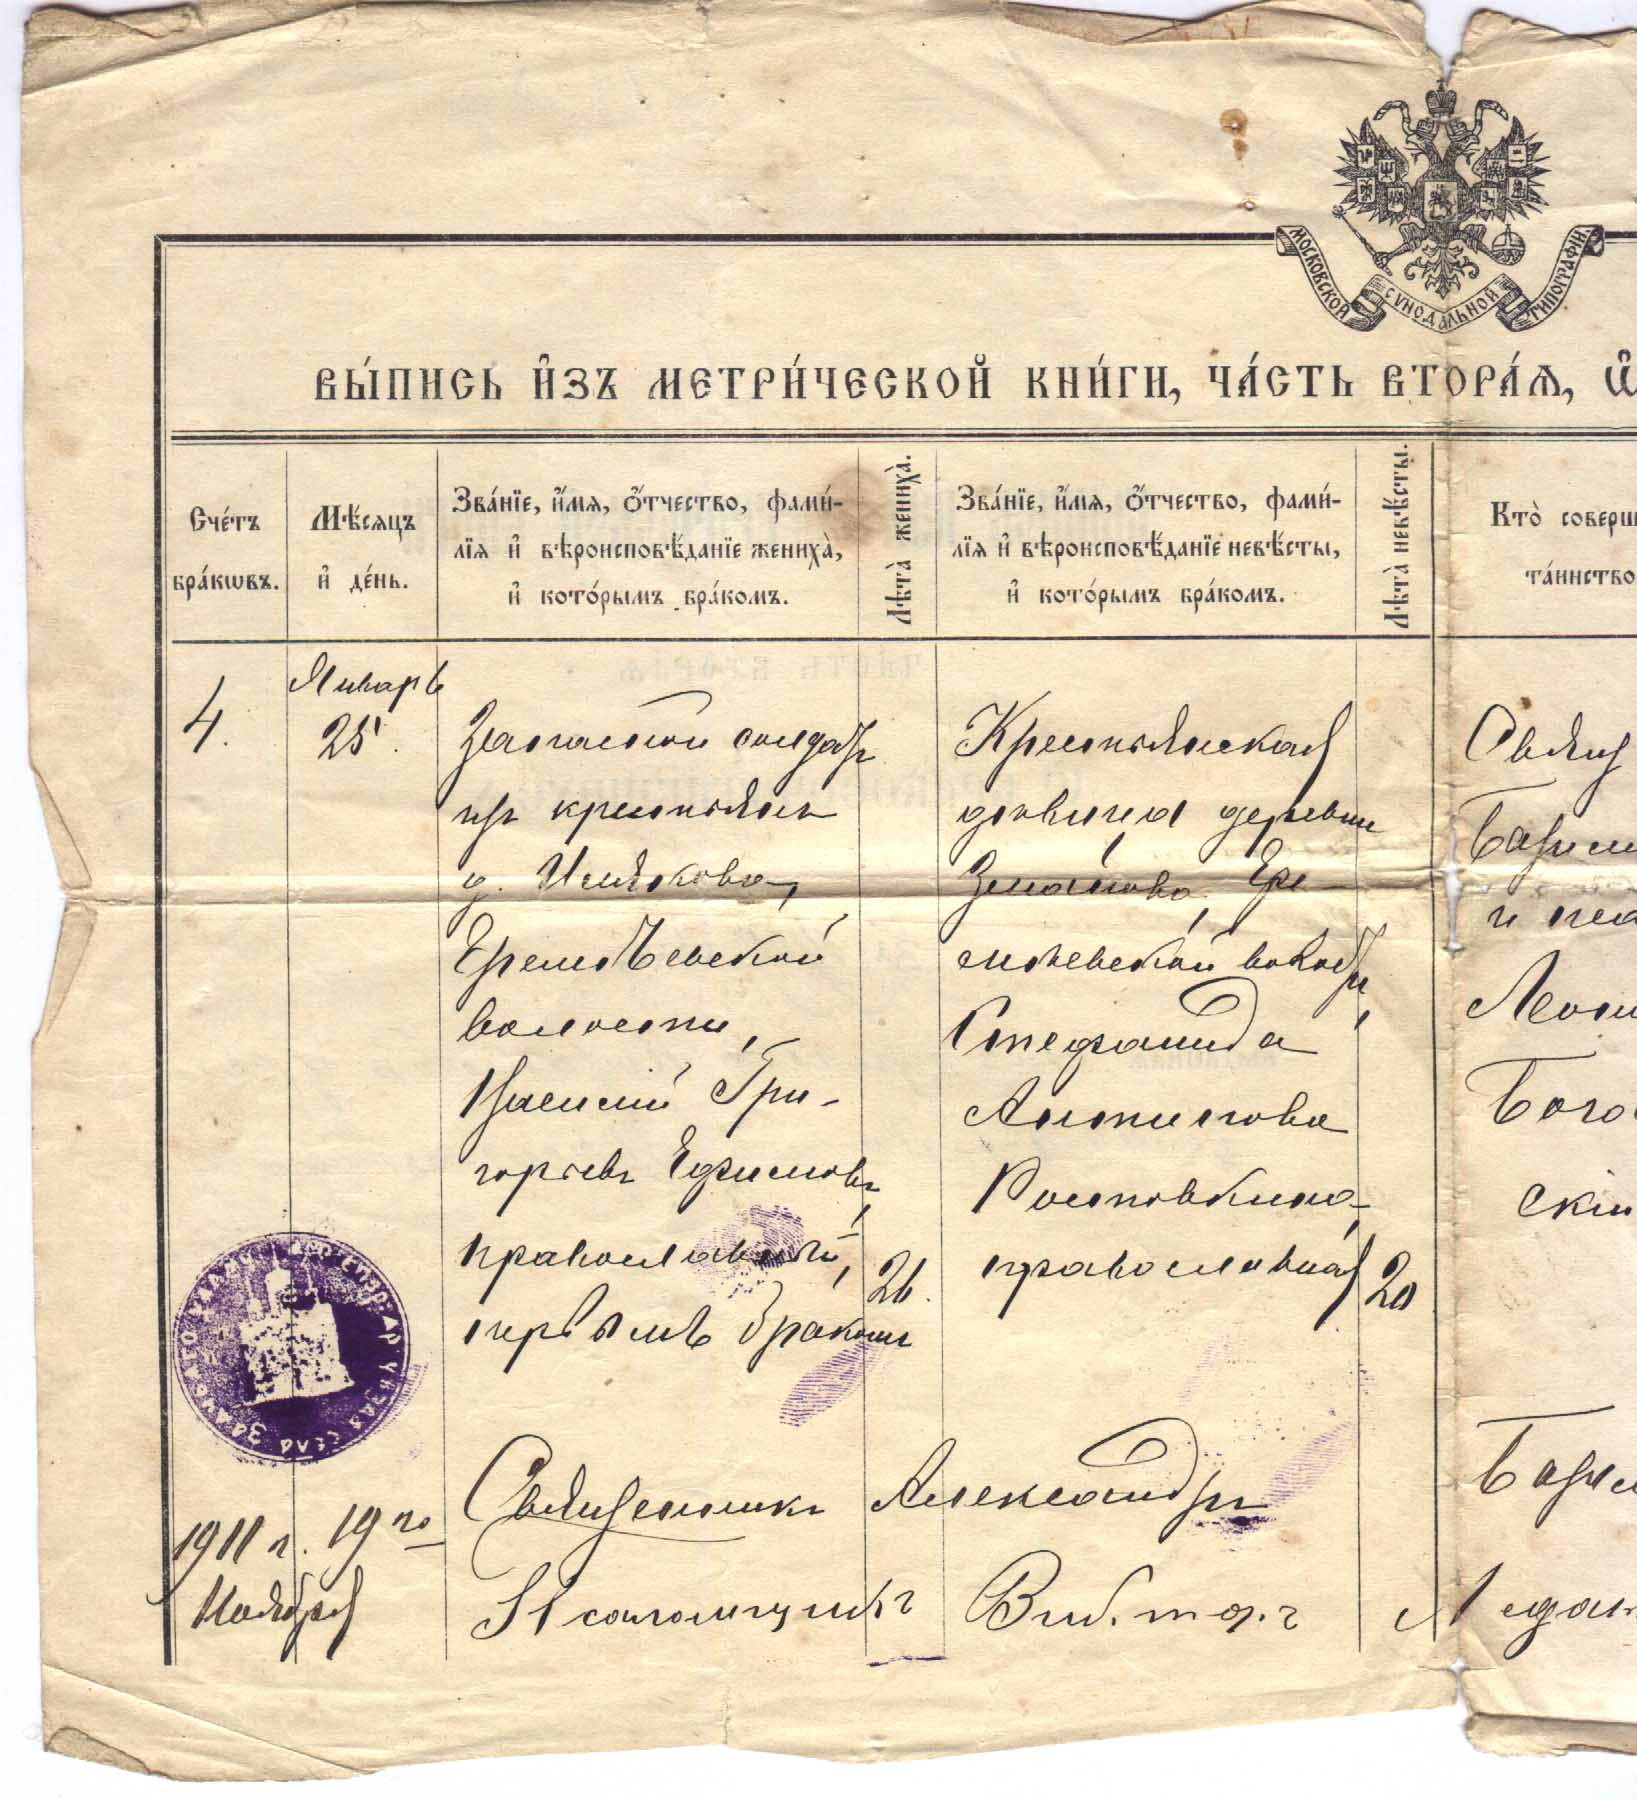 МОСКОВСКОЙ СѴНОДАЛЬНОЙ ТИПОГРАФІИ.
ВЫ́ПИСЬ И҆ЗЪ МЕТРИ́ЧЕСКОЙ КНИ́ГИ, ЧА́СТЬ ВТОРА́Ѧ, Ѽ
Сче́тъ бра́кѡвъ.
Мѣ́сѧцъ и҆ де́нь.
Зва́нїе, и҆́мѧ, ѻ҆́тчество, фами́-
лїѧ и҆ вѣроисповѣ́данїе жениха̀,
и҆ кото́рымъ бра́комъ.
Лѣ́та̀ жениха̀.
Зва́нїе, и҆́мѧ, ѻ҆́тчество, фами́-
лїѧ и҆ вѣроисповѣ́данїе невѣ́сты,
и҆ кото́рымъ бра́комъ.
Лѣ́та̀ невѣ́сты.
Кто̀ соверш
та́инство
4.
Январь
25.
Запасной солдатъ
изъ крестьянъ
д.
Еремѣевской
волости,
Василий Гри-
горьевъ Ефимовъ,
православный,
первымъ бракомъ
26.
Крестьянская
дѣвица деревни
Ере-
мѣевской волости,
Стефанида
Антипова
православная
20
Свящ
и пса
Леон
Бого
скій
СЕЛА
1911 г. 19го
Ноября
Священникъ Александръ
Псаломщикъ Викторъ